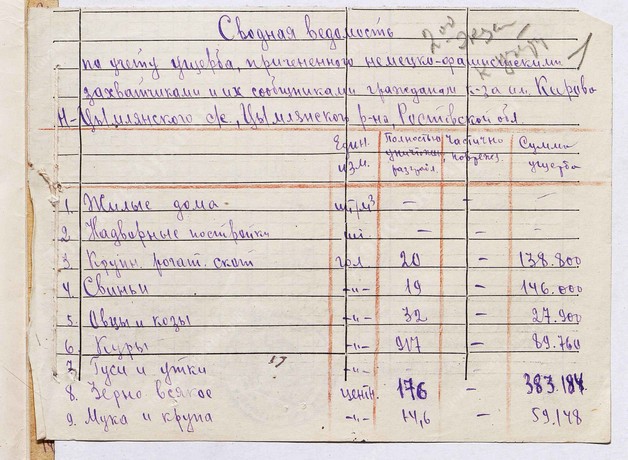 Сводная ведомость
200 экз
по учету ущерба, причененного немецко-фашистскими
захватчиками и их сообщниками гражданам к-за им. Кирова
Н-Цымлянского с/с, Цымлянского р-на, Ростовской обл.
Един. изм. Полностью уничтож. разграб. Частично поврежд. Сумма ущерба
1. Жилые дома шт/м³ - - -
2 Надворные постройки шт. - - -
3. Крупн. рогат. скот гол. 20 - 138.800
4 Свиньи -"- 19 - 146.000
5. Овцы и козы -"- 32 - 27.900
6. Куры -"- 917 - 89.760
7. Гуси и утки -"- -
8. Зерно всякое центн. 176 - 383.184
9. Мука и крупа -"- 14,6 - 59.148
1